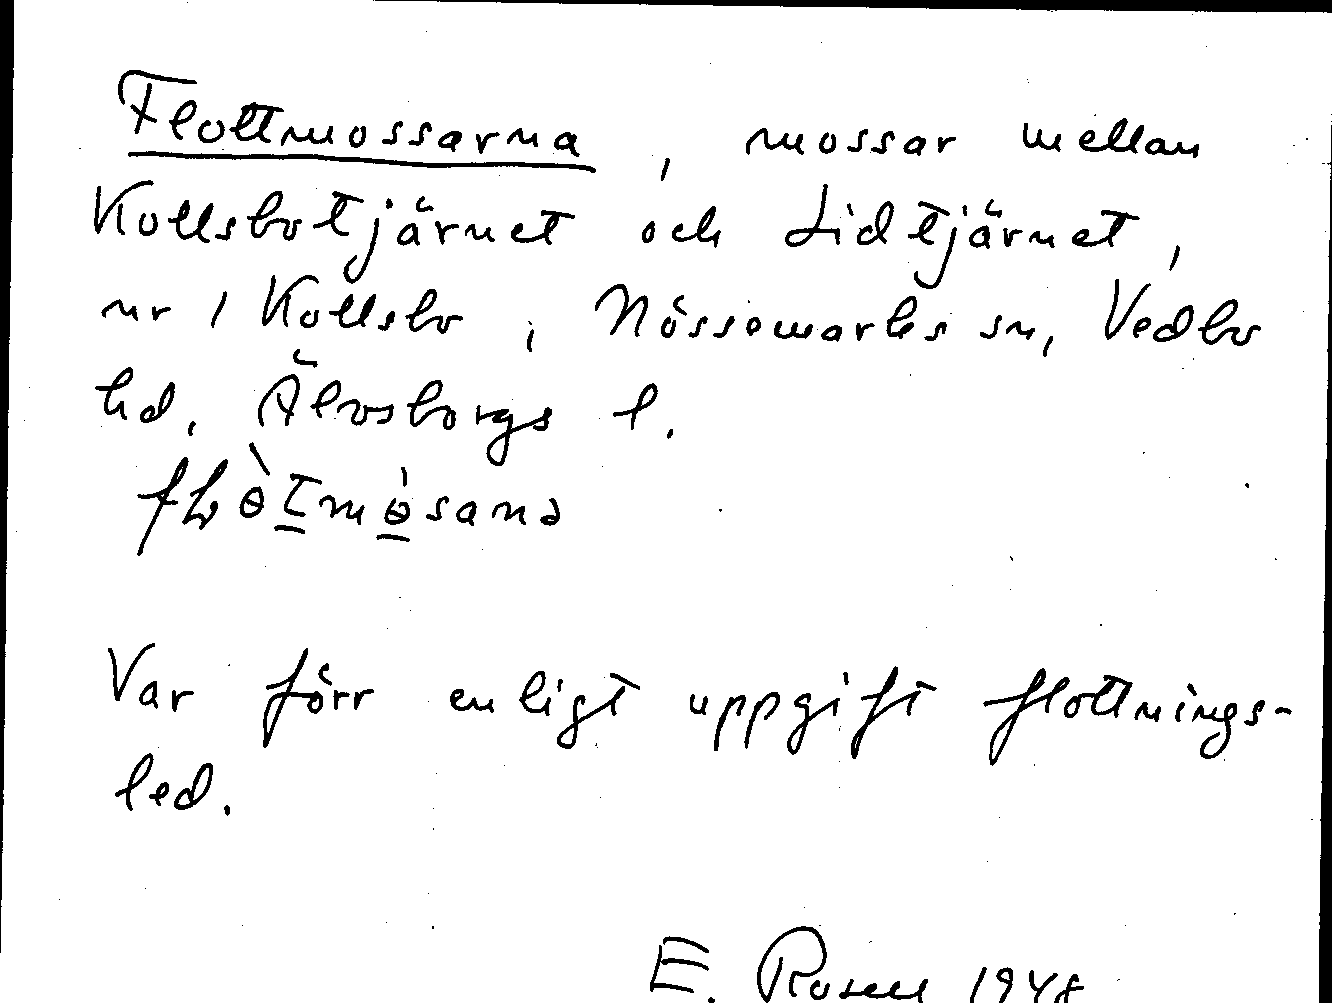 Flottmossarna, mossar mellan
Kollsbotjärnet och Lidtjärnet,
nr 1 Kollsbo, Nössemarks sn, Vedbo
hd, Älvsborgs l.
Var förr enligt uppgift flottnings-
led.
E. Rosell 1948